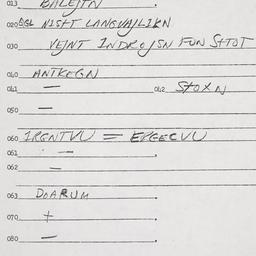 013 BALEJTN
020 NISHT LANGVAJLIKN
030 VEJNT INDROJSN FUN SHTOT
040 ANTKEGN
041 — 042 SHOXN
050 —
060 IRGNTVU = ERGECVU
061 —
062 —
063 DOARUM
070 +
080 —